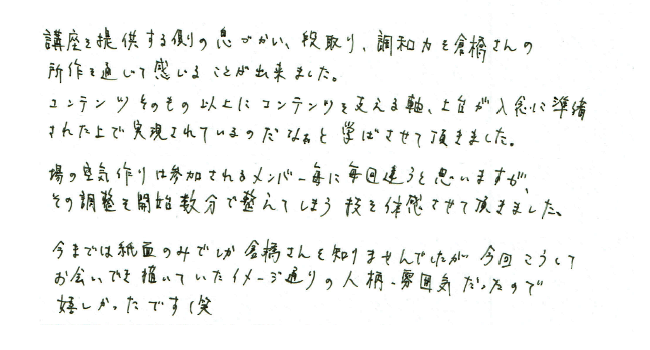 講座を提供する側の息づかい、段取り、調和力を倉橋さんの
所作を通じて感じることが出来ました。
コンテンツそのもの以上にコンテンツを支える軸、土台が入念に準備
された上で実現されているのだなぁと学ばさせて頂きました。
場の空気作りは参加されるメンバー毎に毎回違うと思いますが、
その調整を開始数分で整えてしまう技を体感させて頂きました。
今までは紙面のみでしか倉橋さんを知りませんでしたが今回こうして
お会いでき描いていたイメージ通りの人柄・雰囲気だったので
嬉しかったです(笑